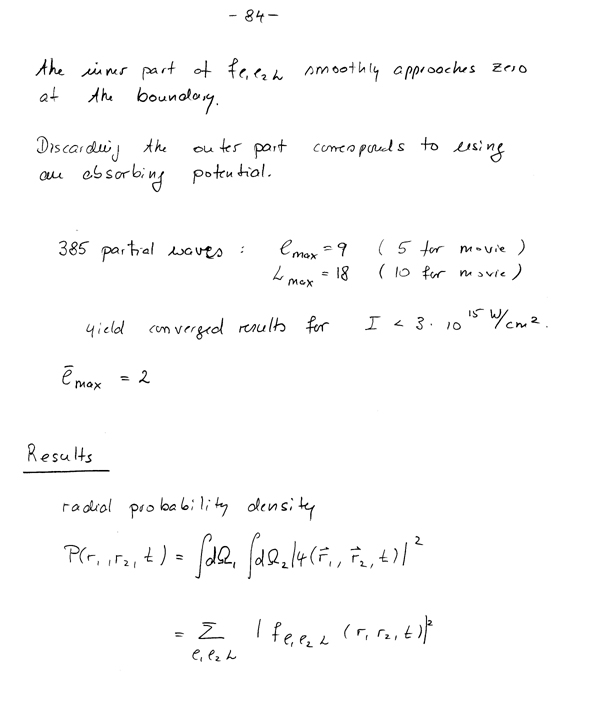 - 84 -
the inner part of fℓ₁ℓ₂L smoothly approaches zero
at the boundary.
Discarding the outer part corresponds to using
an absorbing potential.
385 partial waves : ℓmax = 9 ( 5 for movie )
Lmax = 18 ( 10 for movie )
yield converged results for I < 3 · 10¹⁵ W/cm².
ℓ̄max = 2
Results
radial probability density
P(r₁, r₂, t) = ∫dΩ₁ ∫dΩ₂ |ψ(r⃗₁, r⃗₂, t)|²
= Σℓ₁ℓ₂L | fℓ₁ℓ₂L (r₁ r₂, t)|²